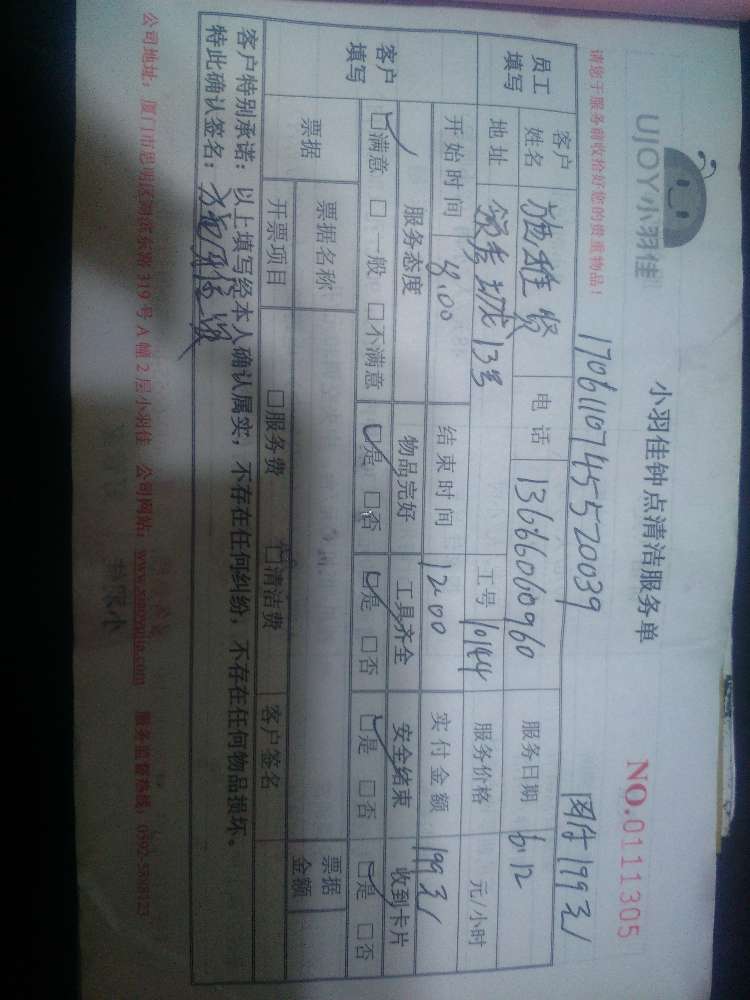 UJOY小羽佳
小羽佳钟点清洁服务单
NO.0111305
请您于服务前收拾好您的贵重物品！
17061107455520039
网付199元
员工填写
客户姓名 施雅贤 电话 13666060960 服务日期 6.12
地址 领秀城13号 工号 10144 服务价格 元/小时
开始时间 8:00 结束时间 12:00 实付金额 199元
客户填写
服务态度 物品完好 工具齐全 安全结束 收到卡片
☑满意 □一般 □不满意 ☑是 □否 ☑是 □否 ☑是 □否 ☑是 □否
票据 票据名称 票据金额
开票项目 □服务费 □清洁费 客户签名
客户特别承诺：以上填写经本人确认属实，不存在任何纠纷，不存在任何物品损坏。
特此确认签名：施雅贤
公司地址：厦门市思明区湖滨东路319号A幢2层小羽佳 公司网站：www.xiaoyujia.com 服务监督热线：0592-5808123